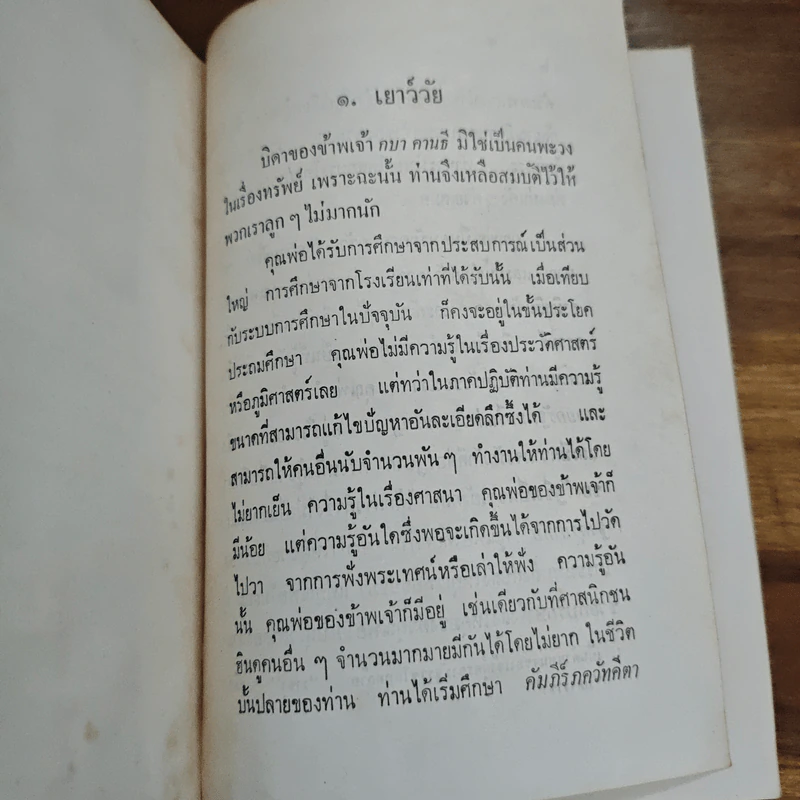 ๑. เยาว์วัย
บิดาของข้าพเจ้า คบา คานธี มิใช่เป็นคนพะวง
ในเรื่องทรัพย์ เพราะฉะนั้น ท่านจึงเหลือสมบัติไว้ให้
พวกเราลูก ๆ ไม่มากนัก
คุณพ่อได้รับการศึกษาจากประสบการณ์เป็นส่วน
ใหญ่ การศึกษาจากโรงเรียนเท่าที่ได้รับนั้น เมื่อเทียบ
กับระบบการศึกษาในปัจจุบัน ก็คงจะอยู่ในชั้นประโยค
ประถมศึกษา คุณพ่อไม่มีความรู้ในเรื่องประวัติศาสตร์
หรือภูมิศาสตร์เลย แต่ทว่าในภาคปฏิบัติท่านมีความรู้
ขนาดที่สามารถแก้ไขปัญหาอันละเอียดลึกซึ้งได้ และ
สามารถให้คนอื่นนับจำนวนพัน ๆ ทำงานให้ท่านได้โดย
ไม่ยากเย็น ความรู้ในเรื่องศาสนา คุณพ่อของข้าพเจ้าก็
มีน้อย แต่ความรู้อันใดซึ่งพอจะเกิดขึ้นได้จากการไปวัด
ไปวา จากการฟังพระเทศน์หรือเล่าให้ฟัง ความรู้อัน
นั้น คุณพ่อของข้าพเจ้าก็มีอยู่ เช่นเดียวกับที่ศาสนิกชน
ฮินดูคนอื่น ๆ จำนวนมากมายมีกันได้โดยไม่ยาก ในชีวิต
บั้นปลายของท่าน ท่านได้เริ่มศึกษา คัมภีร์ภควัทคีตา